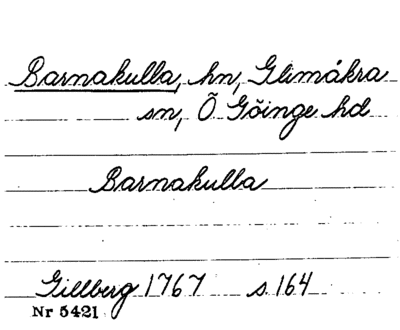 Barnakulla, hn, Glimåkra
sn, Ö Göinge hd
Barnakulla
Gillberg 1767 s 164
Nr 5421